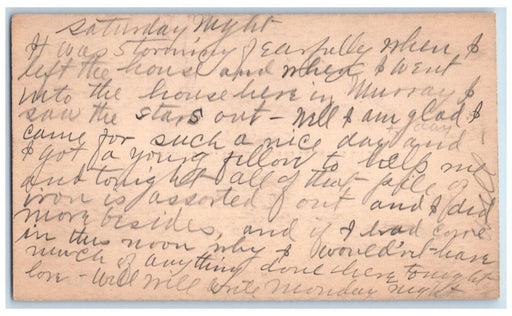 Saturday Night
It was storming fearfully when I
left the house and when I went
into the house here in Murray I
saw the stars out - Well I am glad I
came for such a nice day today and
I got a young fellow to help me
and tonight all of that pile of
iron is assorted out and I did
more besides, and if I had come
in this noon why I wouldn't have
much of anything done here tonight
love - Well will write Monday night